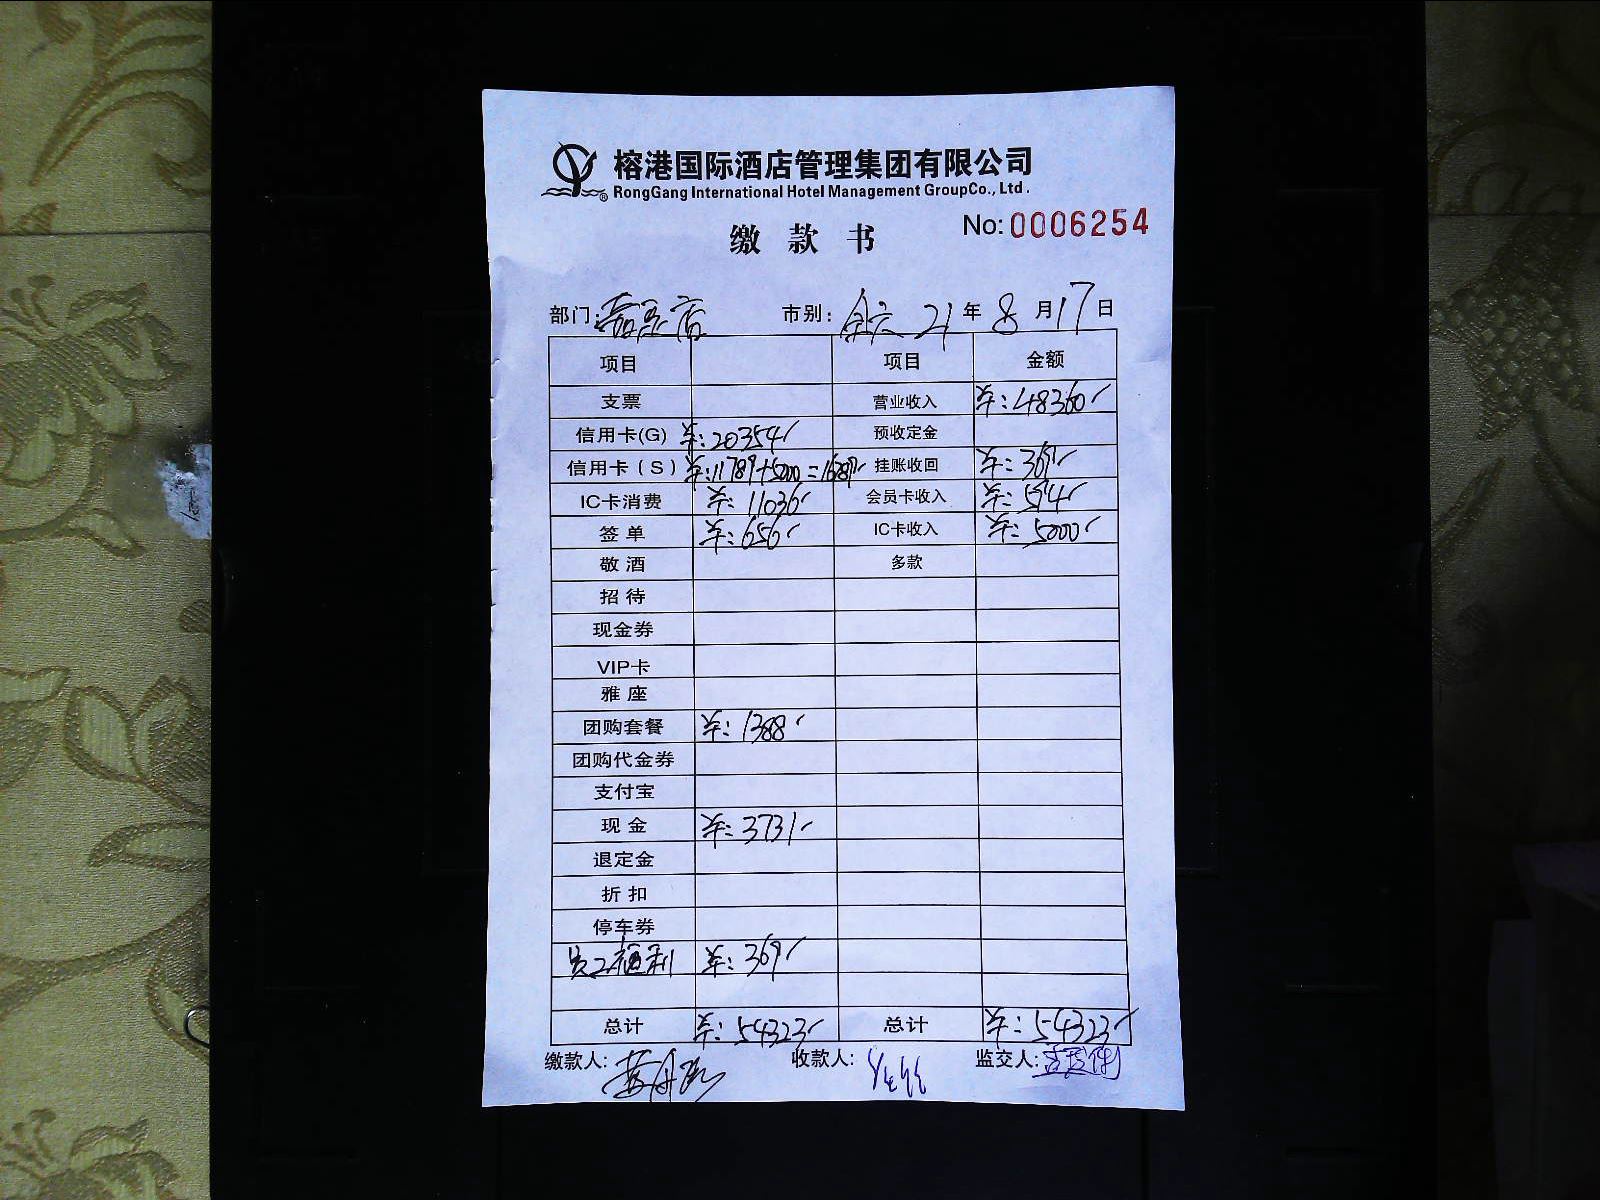 榕港国际酒店管理集团有限公司
RongGang International Hotel Management GroupCo., Ltd.
缴 款 书 No: 0006254
部门: 店 市别: 21 年 8 月 17 日
项目 项目 金额
支票 营业收入 48360
信用卡(G) 20354 预收定金
信用卡(S) 11789+5000=16789 挂账收回 369
IC卡消费 11036 会员卡收入 594
签单 656 IC卡收入 5000
敬酒 多款
招待
现金券
VIP卡
雅座
团购套餐 1388
团购代金券
支付宝
现金 3731
退定金
折扣
停车券
员工福利 369
总计 54323 总计 54323
缴款人: 收款人: 监交人: